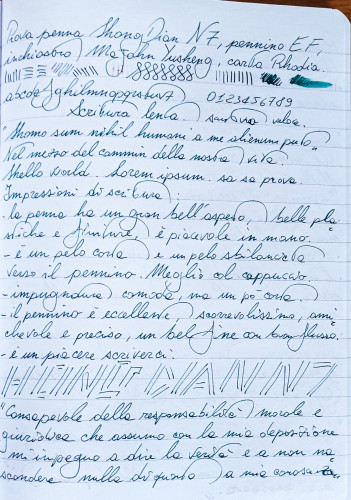 Prova penna Shong Dian N7, pennino EF,
inchiostro Ma John Yusheng, carta Rhodia.
abcdefghilmnopqrstuvz 0123456789
Scrittura lenta. scrittura veloce.
"Homo sum nihil humani a me alienum puto"
Nel mezzo del cammin della nostra vita.
Hello World. Lorem ipsum. sa sa prova.
Impressioni di scrittura:
- la penna ha un gran bell'aspetto, belle pla
stiche e finiture, è piacevole in mano.
- è un pelo corta e un pelo sbilanciata
verso il pennino. Meglio col cappuccio.
- impugnatura comoda, ma un po corta.
- il pennino è eccellente, scorrevolissimo, ami
chevole e preciso, un bel fine con buon flusso.
- è un piacere scriverci.
"Consapevole della responsabilità morale e
giuridica che assumo con la mia deposizione
mi impegno a dire la verità e a non na
scondere nulla di quanto a mia conoscenza